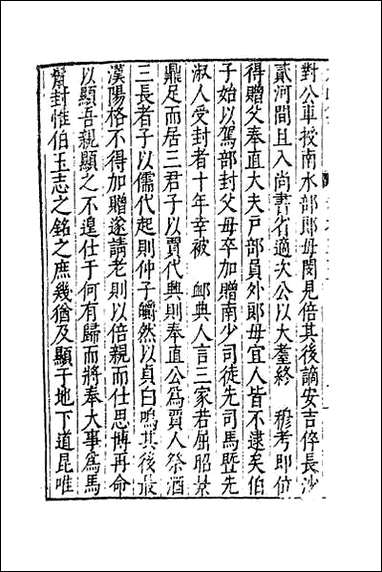 對公車授南水部郎毋閔見倍其後謫安吉倅長沙
貳河間且入尚書省適次公以大耋終　穆考即位
得贈父奉直大夫戶部員外郎毋宜人皆不逮矣伯
子始以駕部封父毋卒加贈南少司徒先司馬暨先
淑人受封者十年幸被　卹典人言三家若屈昭景
鼎足而居三君子以賈代興則奉直公為賈人祭酒
三長者子以儒代起則仲子皭然以貞白鳴其後最
漢陽格不得加贈遂請老則以倍親而仕思摶再命
以顯吾親顯之不遑仕于何有歸而將奉大事為馬
鬛封惟伯玉志之銘之庶幾猶及顯于地下道昆唯